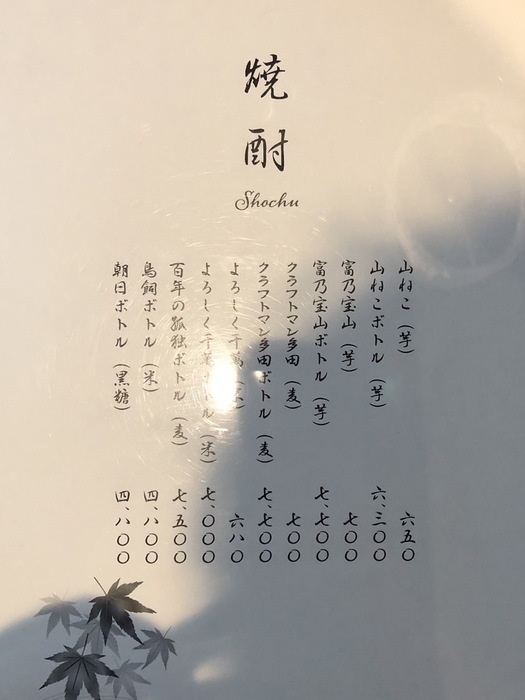 焼酎
Shochu
山ねこ（芋） 六五〇
山ねこボトル（芋） 六、三〇〇
富乃宝山（芋） 七〇〇
富乃宝山ボトル（芋） 七、七〇〇
クラフトマン多田（麦） 七〇〇
クラフトマン多田ボトル（麦） 七、七〇〇
よろしく千萬 六八〇
よろしく千萬 ボトル（米） 七、〇〇〇
百年の孤独ボトル（麦） 七、五〇〇
鳥飼ボトル（米） 四、八〇〇
朝日ボトル（黒糖） 四、八〇〇